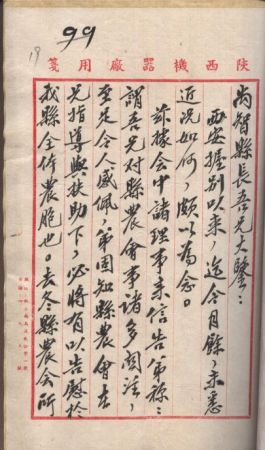 99
19
陝西機器廠用箋
尚智縣長吾兄大鑒：
西安握別以來，迄今月餘，未悉
近況如何，頗以為念。
茲據會中諸理事來信告弟稱：
謂吾兄對縣農會事諸多関注，
至足令人感佩，弟固知縣農會在
兄指導與扶助下，必將有以告慰於
我縣全体農胞也。去冬縣農會所